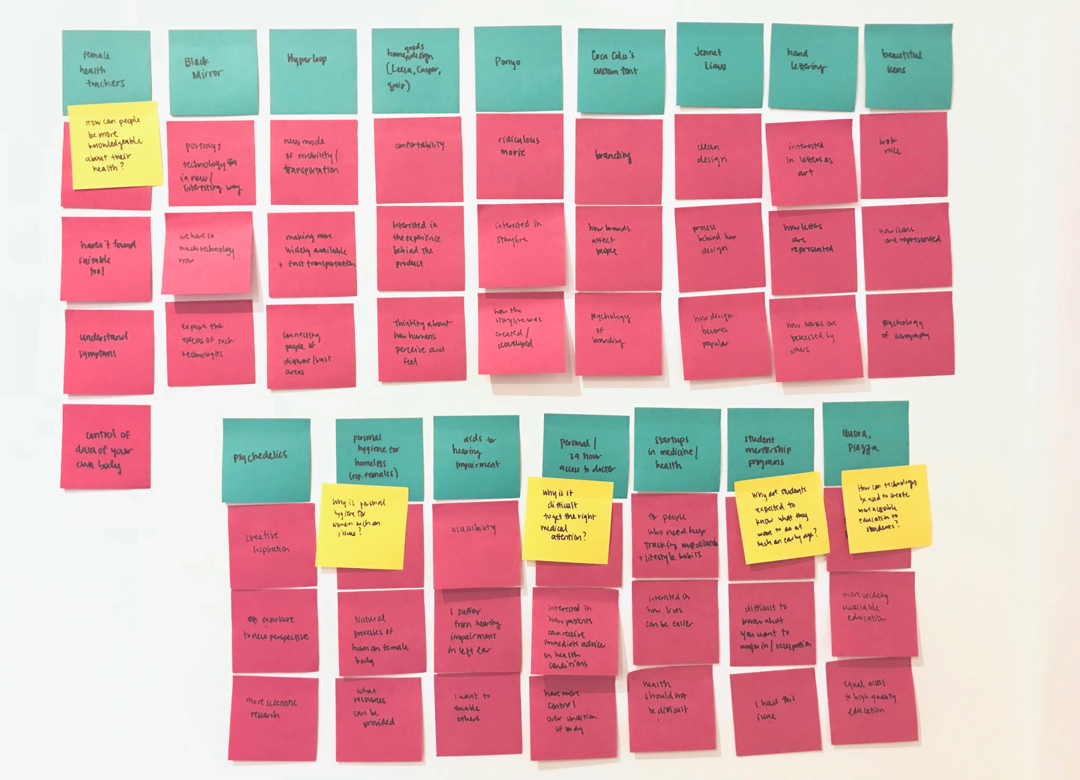 female
health
trackers
How can people
be more
knowledgeable
about their
health?
haven't found
suitable
tool
understand
symptoms
control of
data of your
own body
Black
Mirror
portrays
technology
in new/
interesting way
we have so
much technology
now
explore the
effects of such
technologies
Hyperloop
new mode
of mobility/
transportation
making more
widely available
+ fast transportation
connecting
people of
different/vast
areas
goods
home design
(Leesa, Casper,
quip)
comfortability
Interested in
the experience
behind the
product
Thinking about
how humans
perceive and
feel
Ponyo
ridiculous
movie
interested in
storyline
how the
storyline was
created/
developed
Coca Cola's
custom font
branding
how brands
affect
people
psychology
of
branding
Jennet
Liaw
clean
design
process
behind her
design
how design
becomes
popular
hand
lettering
interested
in letters as
art
how letters
are
represented
how works are
perceived by
others
beautiful
icons
look
nice
how icons
are represented
psychology
of iconography
psychedelics
creative
inspiration
exposure
to new perspective
more scientific
research
personal
hygiene for
homeless
(esp. females)
Why is personal
hygiene for
women such an
issue?
Natural
processes of
human female
body
what
resources
can be
provided
aids for
hearing
impairment
accessibility
I suffer
from hearing
impairment
in left ear
I want to
enable
others
personal/
24 hour
access to doctor
Why is it
difficult
to get the right
medical
attention?
interested in
how patients
can receive
immediate advice
on health
conditions
have more
control
over condition
of body
startups
in medicine/
health
people
who need help
tracking medication
+ lifestyle habits
interested in
how lives
can be easier
health
should not
be difficult
student
mentorship
programs
Why are students
expected to
know what they
want to do at
such an early age?
difficult to
know what
you want to
major in/occupation
I have this
issue
Quora,
Piazza
How can technology
be used to create
more accessible
education to
students?
more widely
available
education
equal access
to high quality
education